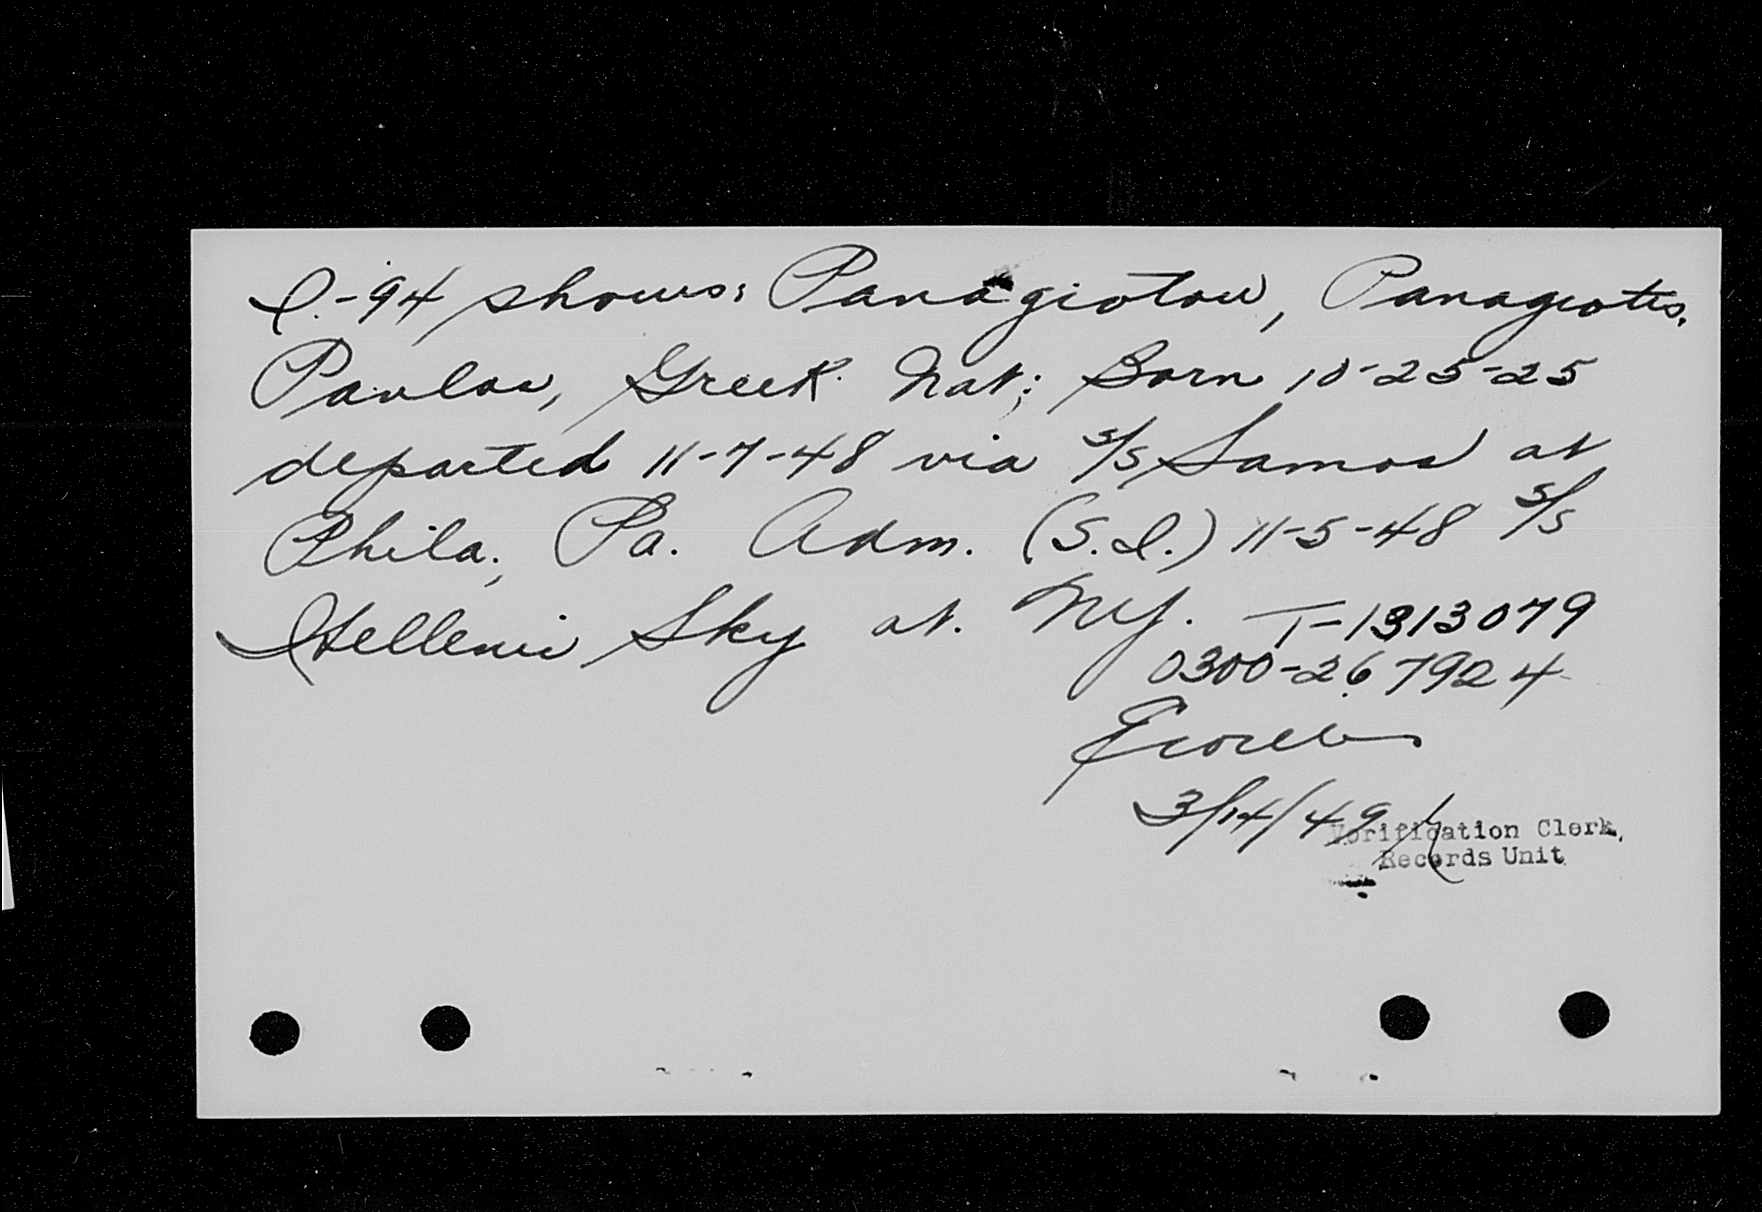 I-94 shows: Panagiotou, Panagiotis.
Pavlos, Greek Nat; Born 10-25-25
departed 11-7-48 via S/S Samos at
Phila., Pa. Adm. (S.I.) 11-5-48 S/S
Hellenic Sky at. NY. T-1313079
0300-267924
3/14/49
Verification Clerk,
Records Unit